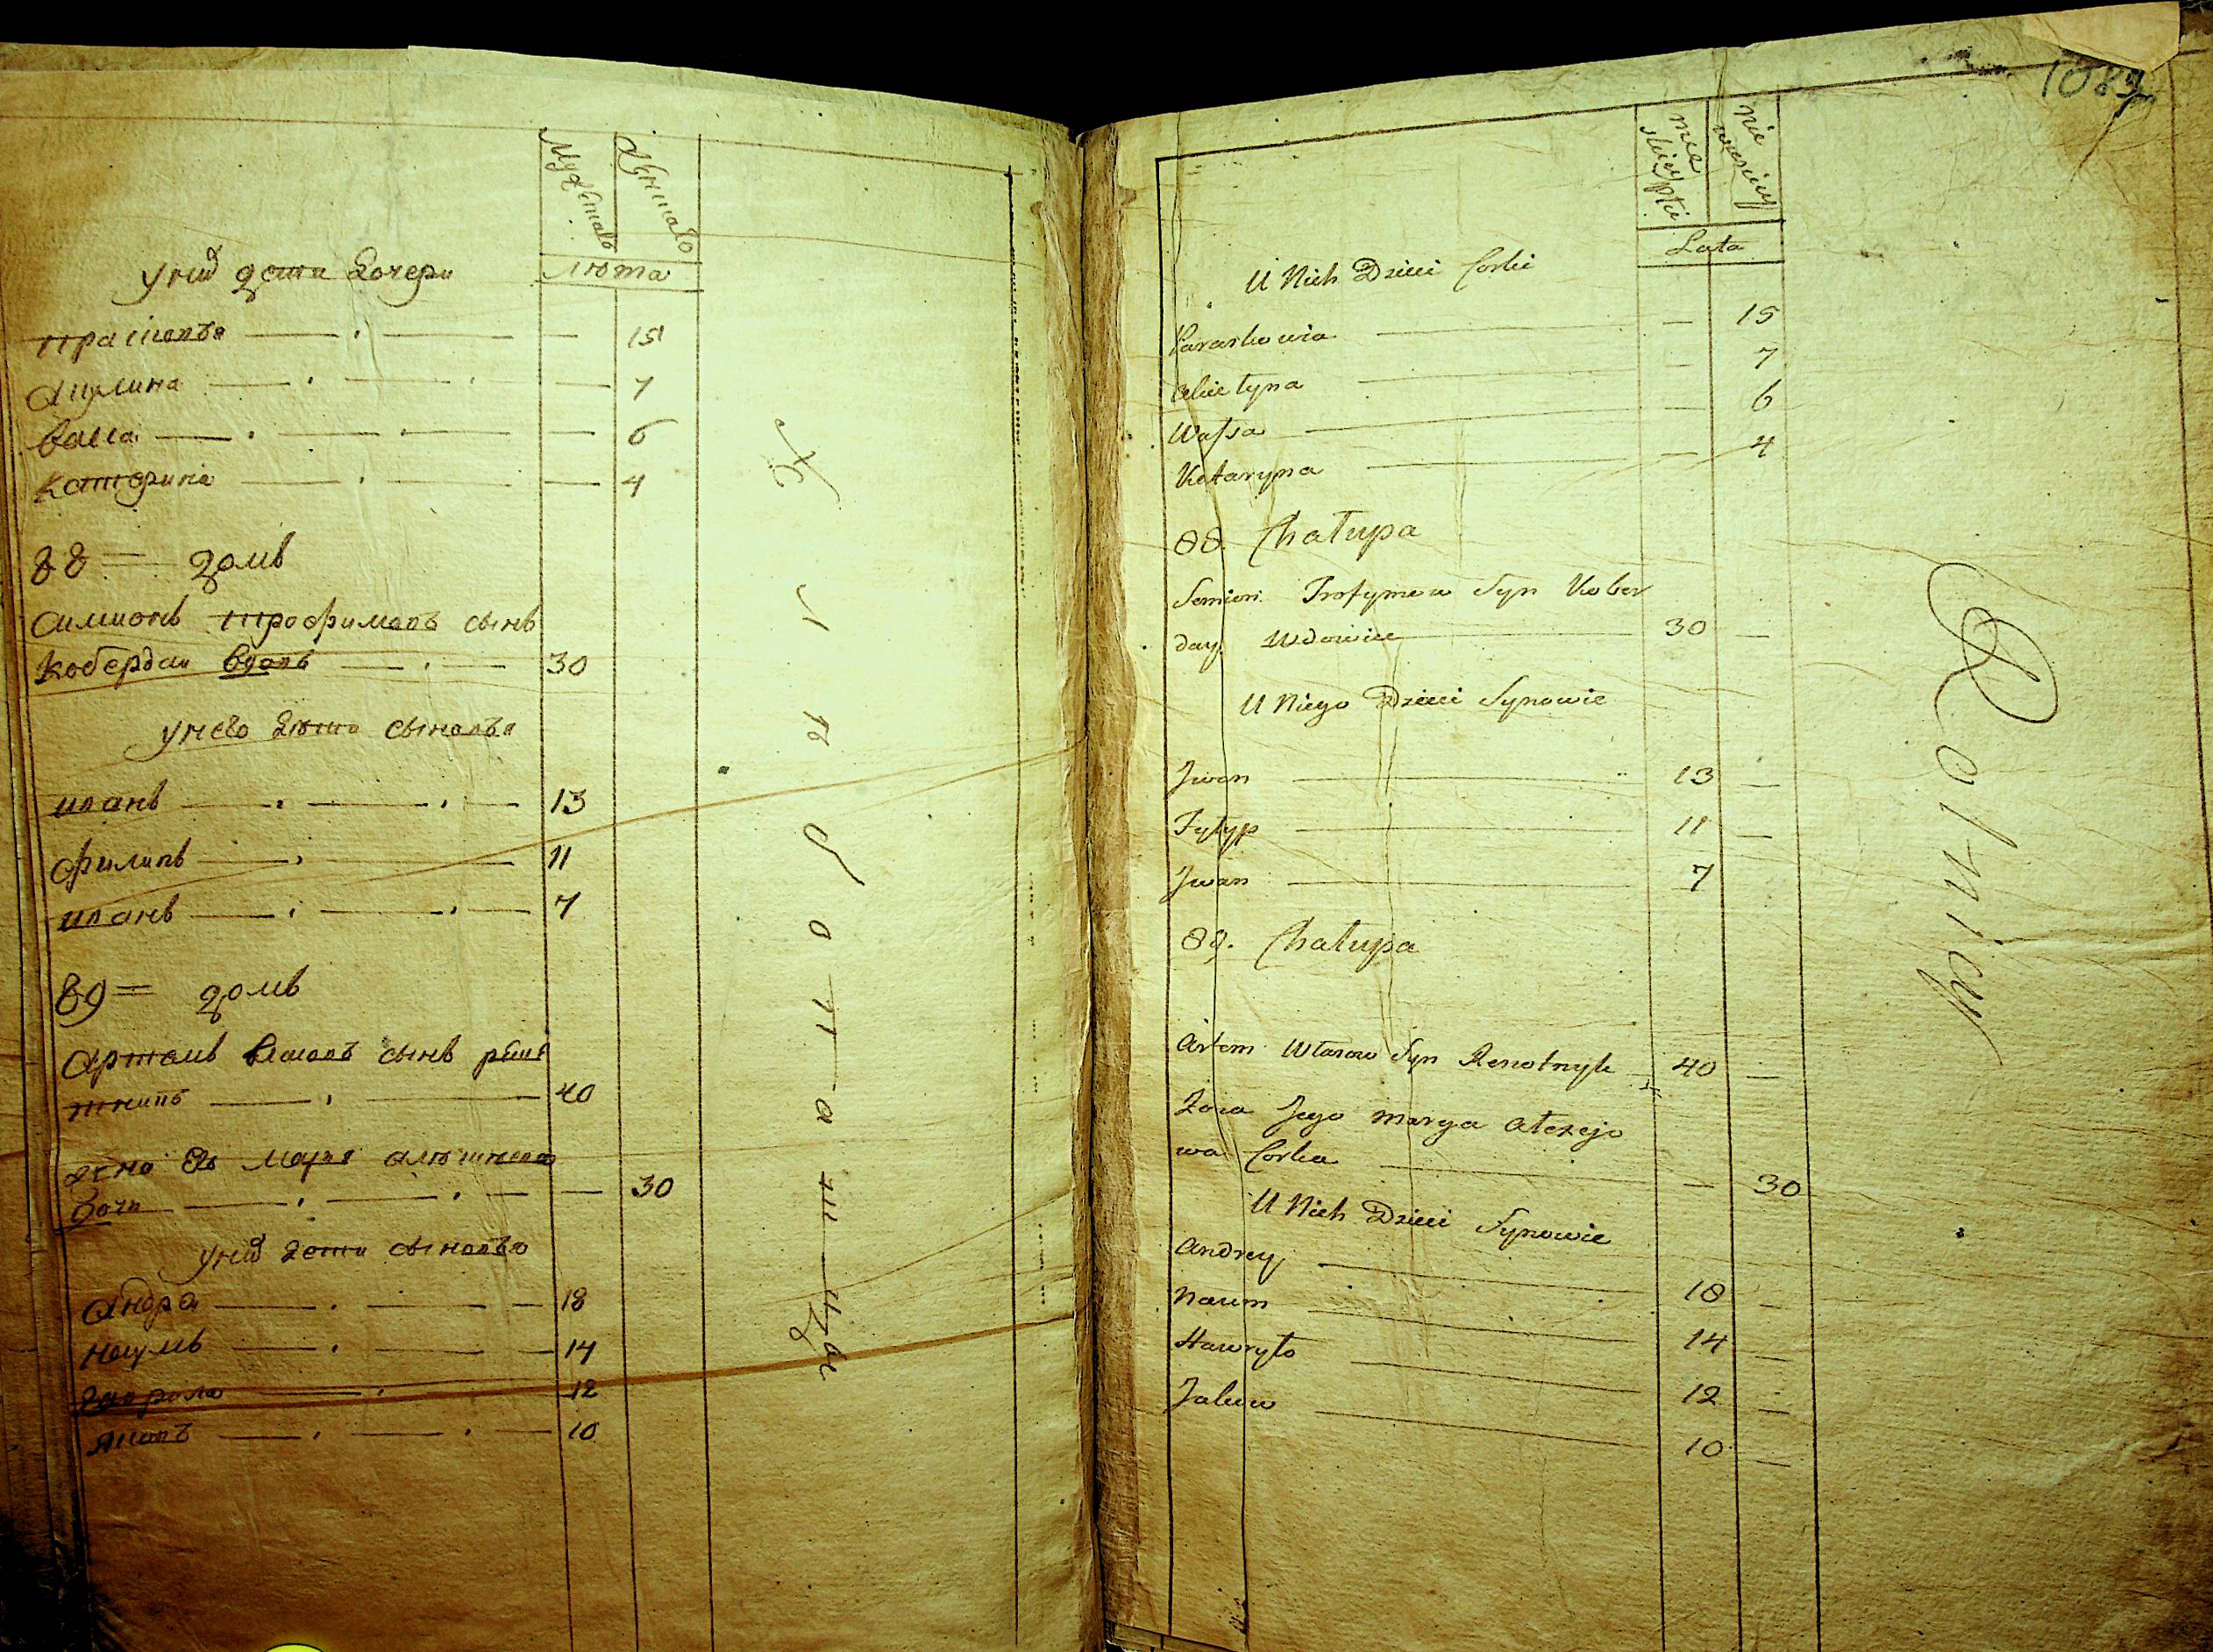 Мужеска Женска
лѣта
у них дети дочери
прасковя — 15
Акулина — 7
васса — 6
катерина — 4
88 = домъ
симионъ трофимовъ сынъ
кобердаи вдовъ — 30
у него дѣти сыновья
иванъ — 13
филипъ — 11
иванъ — 7
89 = домъ
Артемъ власовъ сынъ реше
тникъ — 40
жена ево маря
дочи — 30
у них дети сыновья
Андре — 18
наумъ — 14
гаврила — 12
яковъ — 10
Хлѣбопашцы
1089
męskiey płci
Lata
U Nich Dzieci Corki
Paraskowia — 15
Akielyna — 7
Wassa — 6
Kataryna — 4
88. Chałupa
Semion Trofymow Syn Kober
day Wdowiec — 30 —
U Niego Dzieci Synowie
Jwan — 13 —
Fylyp — 11 —
Jwan — 7
89. Chałupa
Artem Własow Syn Reszotnyk — 40 —
Żona Jego Marya Alexejo
wa Corka — 30
U Nich Dzieci Synowie
Andrey — 18 —
Naum — 14 —
Hawryło — 12 —
Jakow — 10 —
Rolnicy